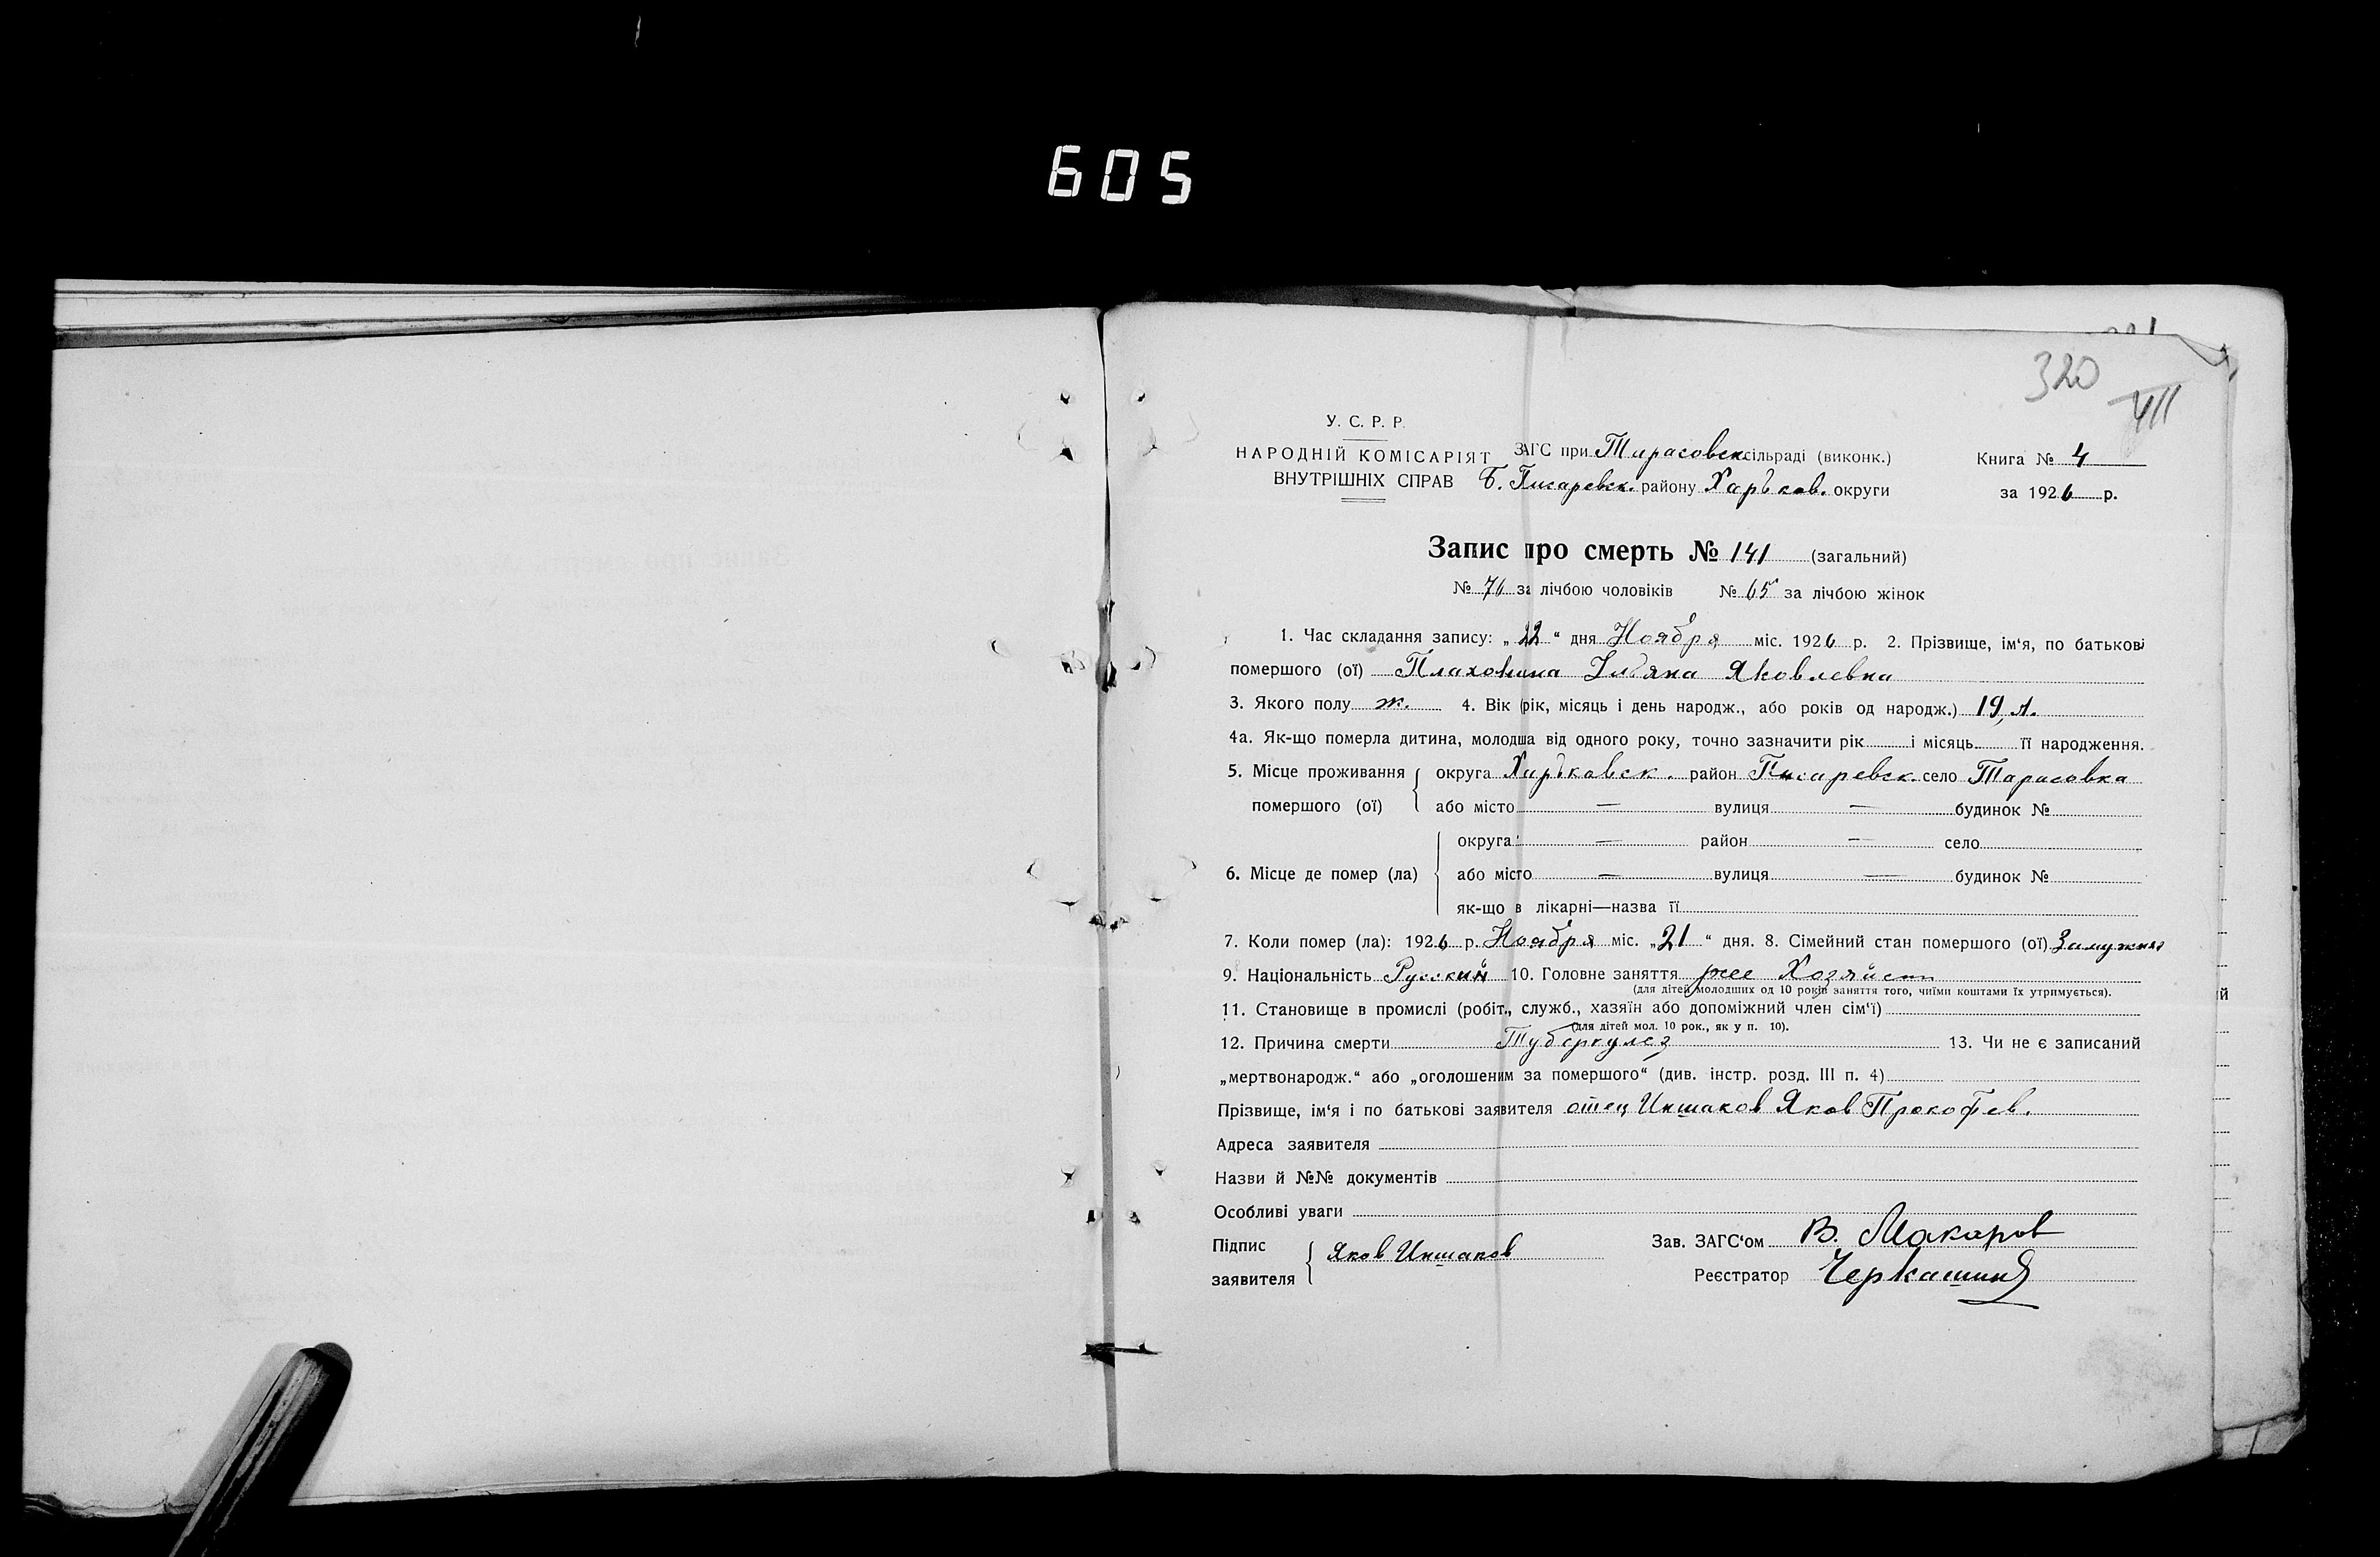 605
320
У. С. Р. Р.
НАРОДНІЙ КОМІСАРІЯТ ЗАГС при Тарасовск сільраді (виконк.) Книга № 4
ВНУТРІШНІХ СПРАВ Б. Писаревск. району Харьков. округи за 1926 р.
Запис про смерть № 141 (загальний)
№ 76 за лічбою чоловіків № 65 за лічбою жінок
1. Час складання запису: „22“ дня Ноября міс. 1926 р. 2. Прізвище, ім‘я, по батькові
помершого (ої) Яковлевна
3. Якого полу ж. 4. Вік (рік, місяць і день народж., або років од народж.) 19 л.
4а. Як-що померла дитина, молодша від одного року, точно зазначити рік і місяць її народження.
5. Місце проживання округа Харьковск. район Писаревск. село Тарасовка
помершого (ої) або місто — вулиця — будинок №
округа — район — село
6. Місце де помер (ла) або місто — вулиця — будинок №
як-що в лікарні—назва її
7. Коли помер (ла): 1926 р. Ноября міс. „21“ дня. 8. Сімейний стан помершого (ої) Замужняя
9. Національність Русский 10. Головне заняття
(для дітей молодших од 10 років заняття того, чиїми коштами їх утримується).
11. Становище в промислі (робіт., служб., хазяїн або допоміжний член сім‘ї)
(для дітей мол. 10 рок., як у п. 10).
12. Причина смерти Туберкулез 13. Чи не є записаний
„мертвонародж.“ або „оголошеним за помершого“ (див. інстр. розд. III п. 4)
Прізвище, ім‘я і по батькові заявителя отец Иншаков Яков Прокофев.
Адреса заявителя
Назви й №№ документів
Особливі уваги
Підпис Яков Иншаков Зав. ЗАГС‘ом В. Макаров
заявителя Реєстратор Черкашин